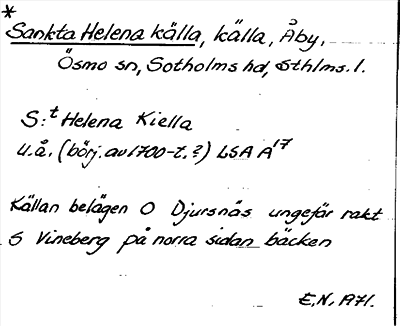 *
Sankta Helena källa, källa, Åby,
Ösmo sn, Sotholms hd, Sthlms. l.
S:t Helena Kiella
u.å. (börj. av 1700-t.?) LSA A17
Källan belägen O Djursnäs ungefär rakt
S Vineberg på norra sidan bäcken
E.N. 1971.